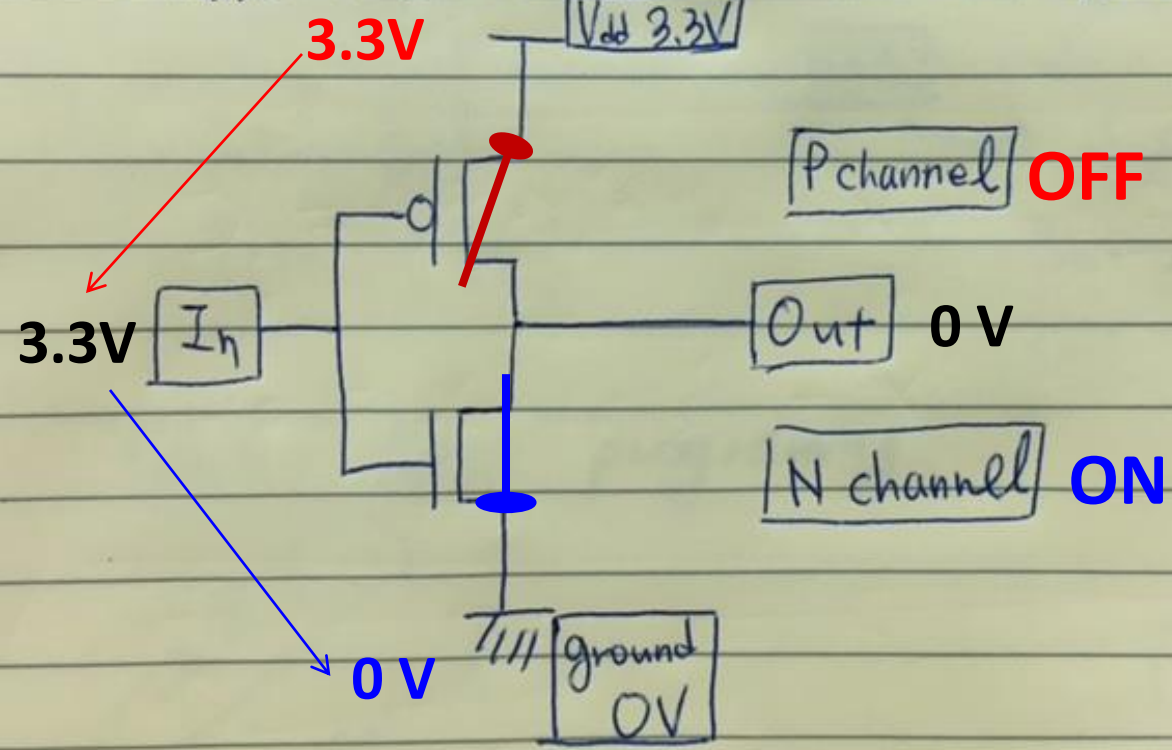 3.3V
Vdd 3.3V
P channel OFF
3.3V In Out 0 V
N channel ON
0 V
ground
0V